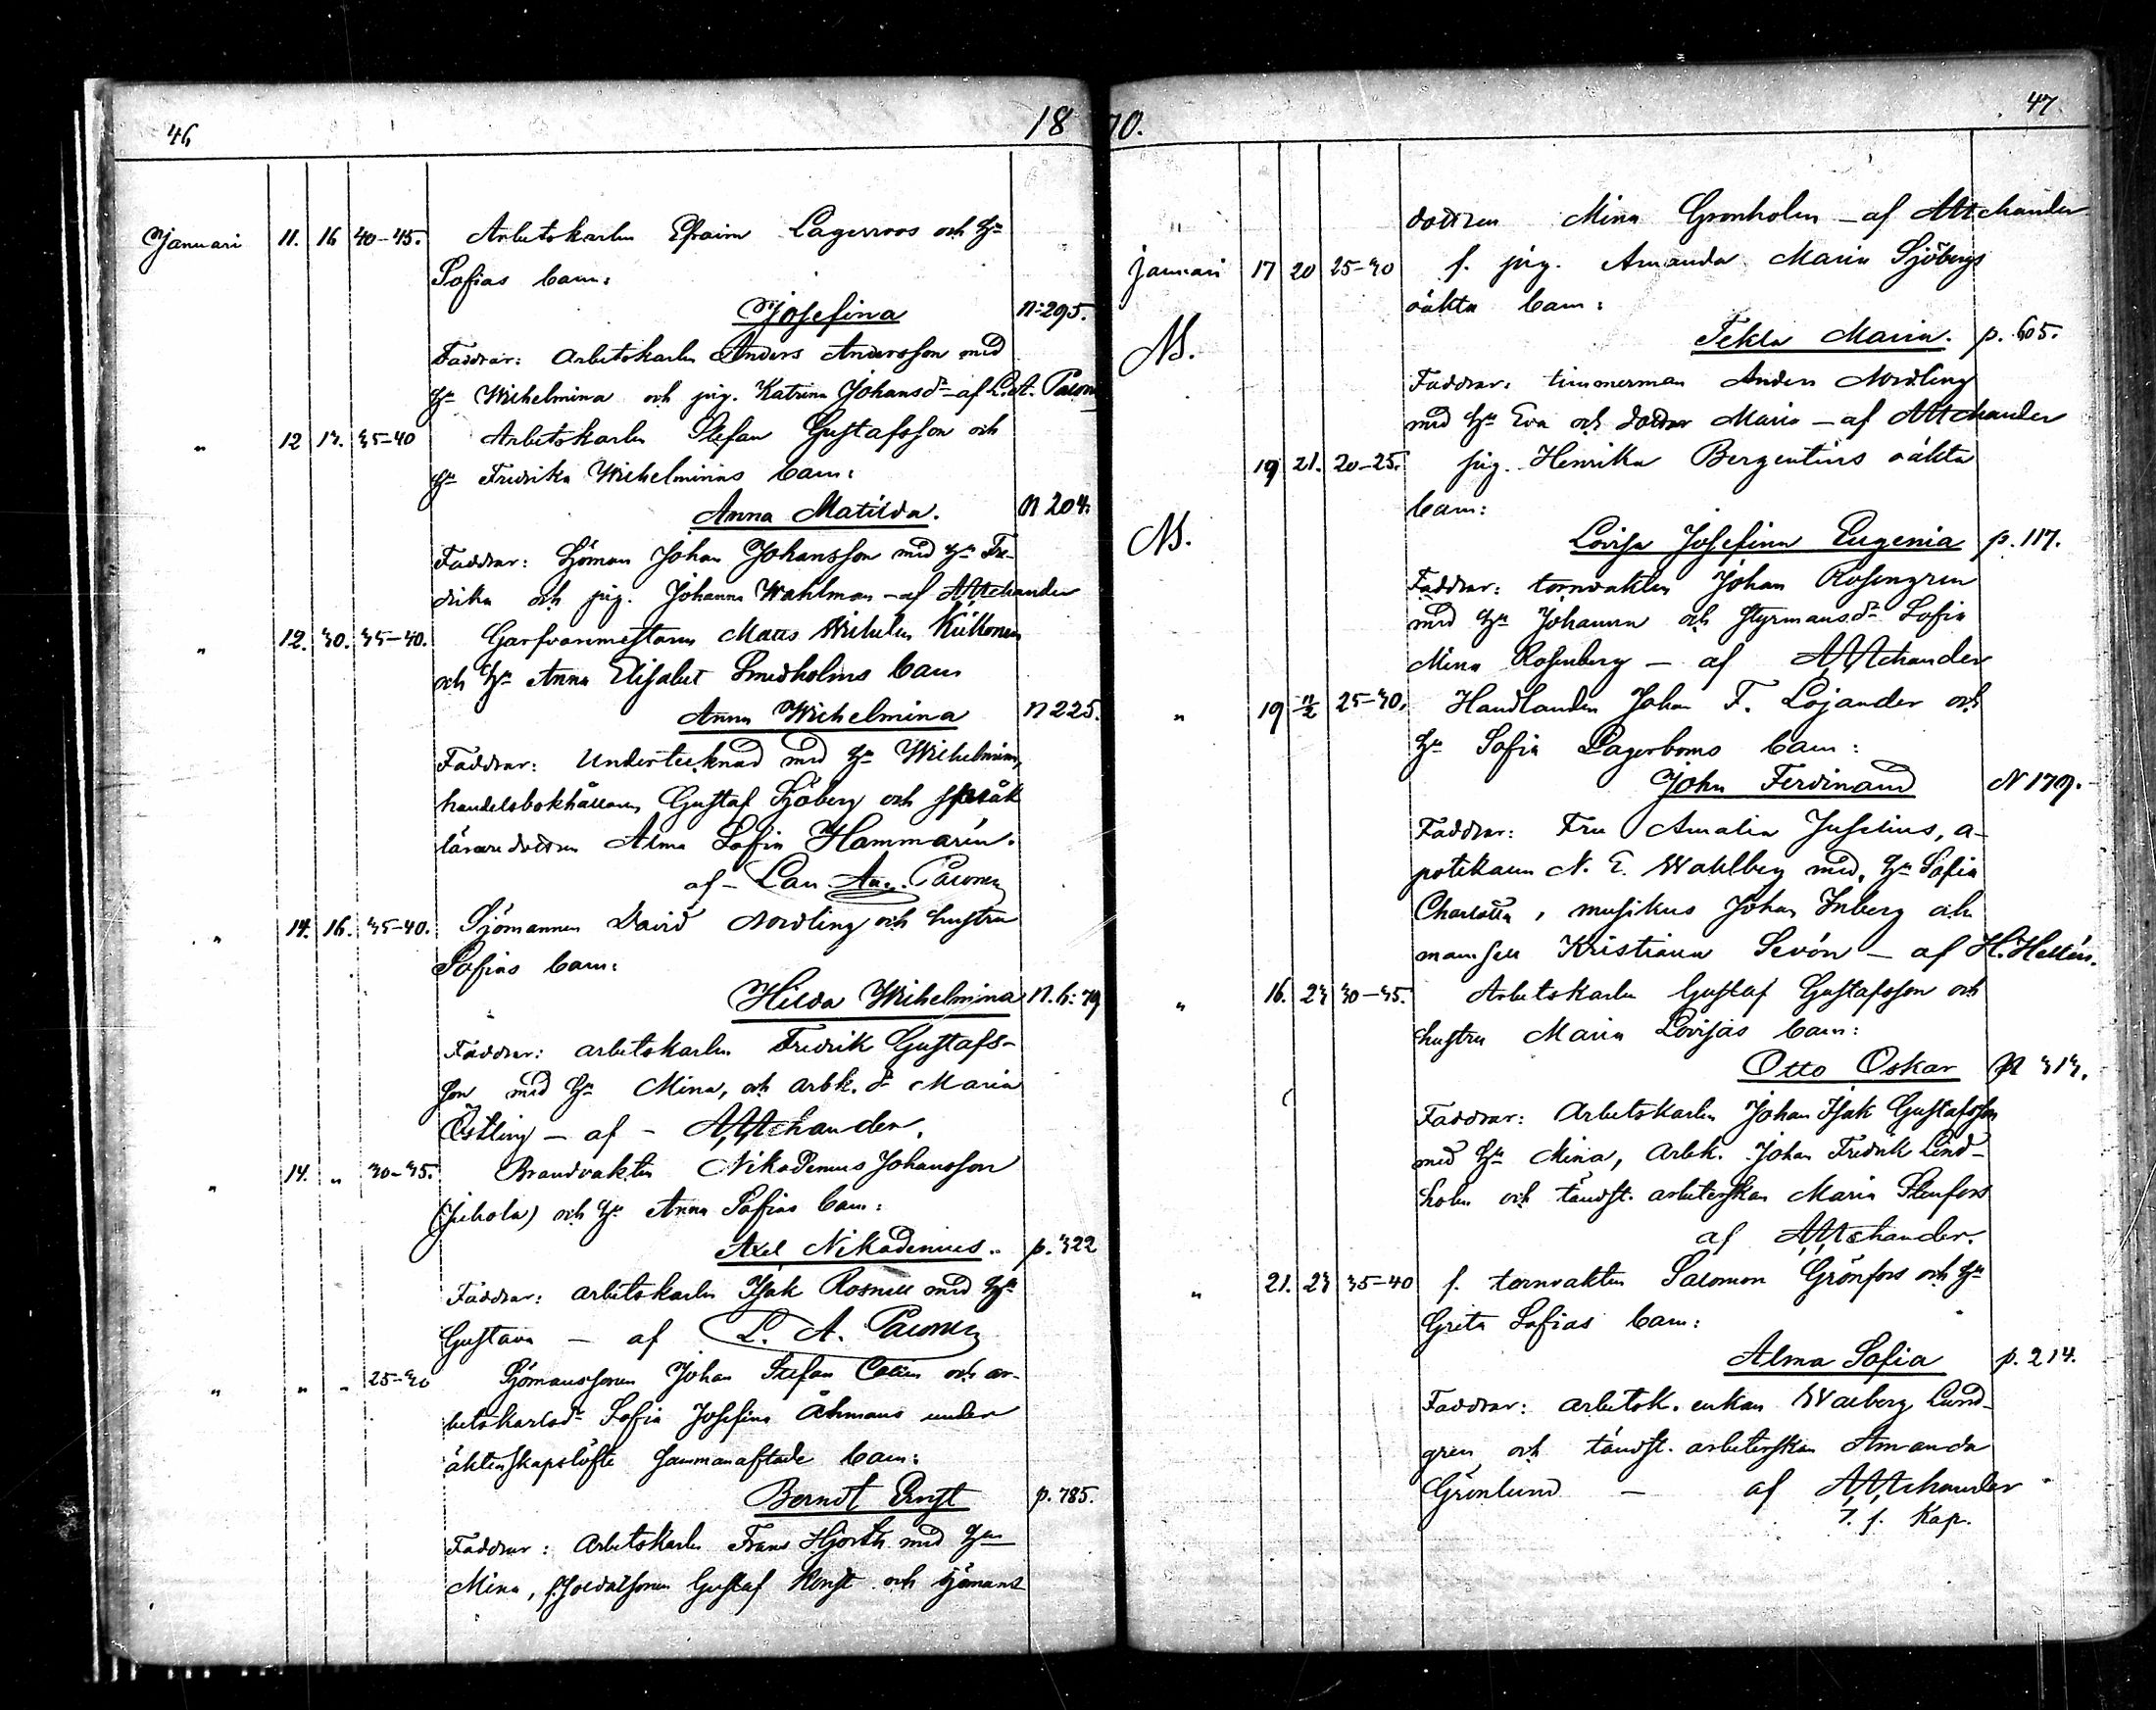 46
1870.
Januari 11. 16 40-45. Arbetskarlen Efraim Lagerroos och Hu
Sofias barn:
Josefina N:295.
Faddrar: arbetskarlen Anders Andersson med
hu Wilhelmina och pig. Katrina Johansdr - af L. A. Palonen
" 12 17. 35-40 Arbetskarlen Stefan Gustafsson och
hu Fredrika Wilhelminas barn:
Anna Matilda. N 204.
Faddrar: Sjöman Johan Johansson med hu Fre-
drika och pig. Johanna Wahlman - af
" 12. 30. 35-40. Garfvaremästaren Matts Wilhelm
och hu Anna Elisabet Smedholms barn
Anna Wilhelmina N 225.
Faddrar: Undertecknad med hu Wilhelmina,
handelsbokhållaren Gustaf Sjöberg och språk
läraredottren Alma Sofia Hammarén.
af - Lau. Aug. Palonen
" 14. 16. 35-40. Sjömannen David Nordling och hustru
Sofias barn:
Hilda Wilhelmina N. b: 79
Faddrar: arbetskarlen Fredrik Gustafs-
son med hu Mina, och arbk. dr Maria
Östling - af -
" 14. " 30-35. Brandvakten Nikodemus Johansson
(Juhola) och hu Anna Sofias barn:
Axel Nikodemus. p. 322
Faddrar: arbetskarlen Isak Rosnell med hu
Gustava - af L. A. Palonen
" " " 25-30 Sjömanssonen Johan Stefan och ar-
betskarlsdr Sofia Josefina Åhmans under
äktenskapslöfte sammanaflade barn:
Berndt Ernst p. 785.
Faddrar: Arbetskarlen Frans Hjorth med hu
Mina, f. soldatsonen Gustaf och sjömans
47
dottren Mina Grönholm - af
Januari 17 20 25-30 f. pig. Amanda Maria Sjöbergs
oäkta barn:
NB. Tekla Maria. p. 605.
Faddrar: timmerman Anders Nordling
med hu Eva och dotter Maria - af
19 21. 20-25. pig. Henrika Bergentins oäkta
barn:
NB. Lovisa Josefina Eugenia p. 117.
Faddrar: tornvakten Johan Rosengren
med hu Johanna och Styrmansdr Sofia
Mina Rosenberg - af
" 19 11/2 25-30. Handlanden Johan F. Lojander och
hu Sofia Lagerboms barn:
John Ferdinand N 179.
Faddrar: Fru Amalia Juselius, a-
potekaren N. E. Wahlberg med hu Sofia
Charlotta, musikus Johan Inberg och
mamsell Kristiana Sevón - af H. Hellén.
" 16. 23 30-35. Arbetskarlen Gustaf Gustafsson och
hustru Maria Lovisas barn:
Otto Oskar N 313.
Faddrar: Arbetskarlen Johan Isak Gustafsson
med hu Mina, Arbk. Johan Fredrik Lind-
holm och tändst. arbeterskan Maria Stenfors
af
" 21. 23 35-40 f. tornvakten Salomon Grönfors och hu
Greta Sofias barn:
Alma Sofia p. 214.
Faddrar: arbetsk. enkan Walborg Lund-
gren och tändst. arbeterskan Amanda
Grönlund - af
t. f. Kap.